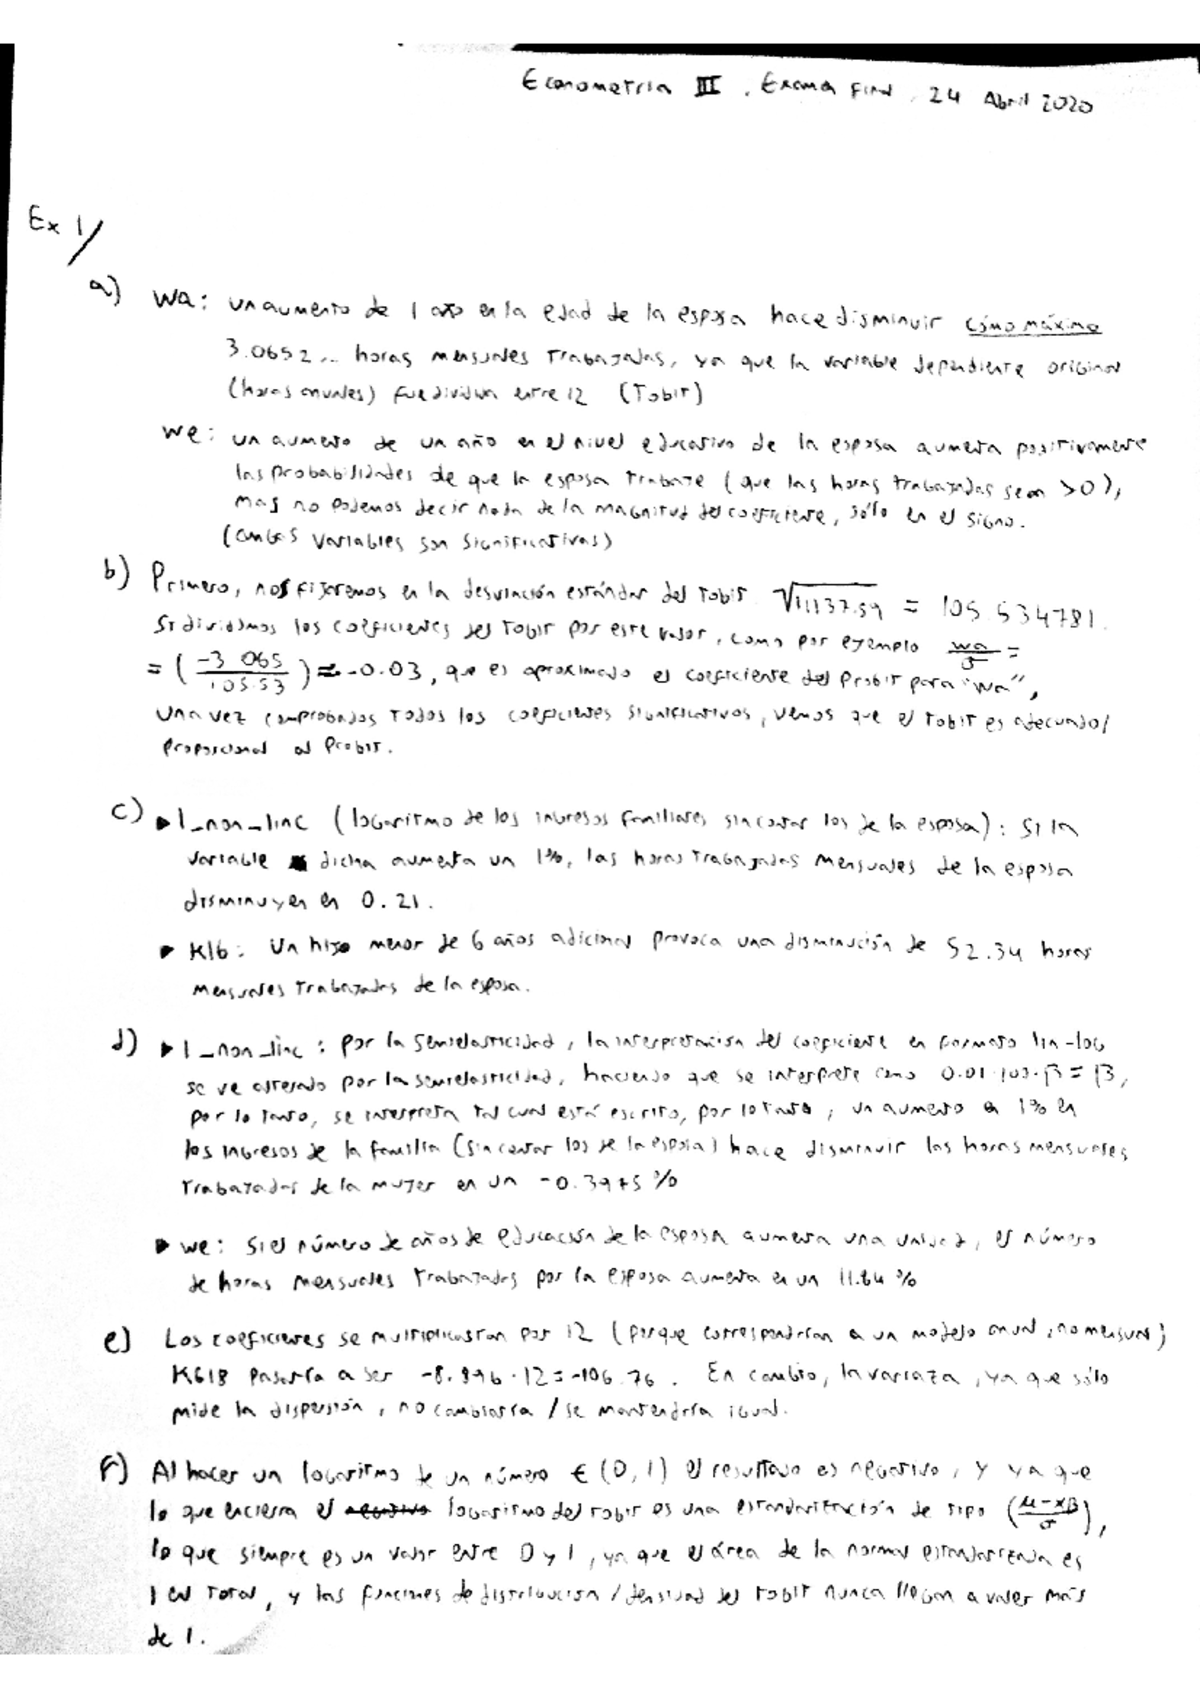 Econometria III, Examen Final, 24 Abril 2020
Ex 1/
a) wa: un aumento de 1 año en la edad de la esposa hace disminuir cómo máximo
3.0652... horas mensuales trabajadas, ya que la variable dependiente original
(horas anuales) fue dividida entre 12 (Tobit)
we: un aumento de un año en el nivel educativo de la esposa aumenta positivamente
las probabilidades de que la esposa trabaje (que las horas trabajadas sean >0),
mas no podemos decir nada de la magnitud del coeficiente, sólo en el signo.
(ambas variables son significativas)
b) Primero, nos fijaremos en la desviación estándar del tobit √11137.59 = 105.534781.
Si dividimos los coeficientes del tobit por este valor, como por ejemplo wa/σ =
= (-3.065/105.53) ≈ -0.03, que es aproximado el coeficiente del Probit para "wa",
una vez comprobados todos los coeficientes significativos, vemos que el tobit es adecuado/
proporcional al Probit.
c) ▸ l_non_linc (logaritmo de los ingresos familiares sin contar los de la esposa): Si la
variable dicha aumenta un 1%, las horas trabajadas mensuales de la esposa
disminuyen en 0.21.
▸ Kl6: Un hijo menor de 6 años adicional provoca una disminución de 52.34 horas
mensuales trabajadas de la esposa.
d) ▸ l_non_linc: por la semielasticidad, la interpretación del coeficiente en formato lin-log
se ve alterado por la semielasticidad, haciendo que se interprete como 0.01·100·β = β,
por lo tanto, se interpreta tal cual está escrito, por lo tanto, un aumento en 1% en
los ingresos de la familia (sin contar los de la esposa) hace disminuir las horas mensuales
trabajadas de la mujer en un -0.3975 %
▸ we: Si el número de años de educación de la esposa aumenta una unidad, el número
de horas mensuales trabajadas por la esposa aumenta en un 11.84 %
e) Los coeficientes se multiplicarían por 12 (porque corresponderían a un modelo anual, no mensual)
K618 pasaría a ser -8.896·12=-106.76. En cambio, la varianza, ya que sólo
mide la dispersión, no cambiaría / se mantendría igual.
f) Al hacer un logaritmo de un número ∈ (0,1) el resultado es negativo, y ya que
lo que encierra el logaritmo del tobit es una estandarización de tipo (μ-xβ/σ),
lo que siempre es un valor entre 0 y 1, ya que el área de la normal estandarizada es
1 en total, y las funciones de distribución / densidad del tobit nunca llegan a valer más
de 1.